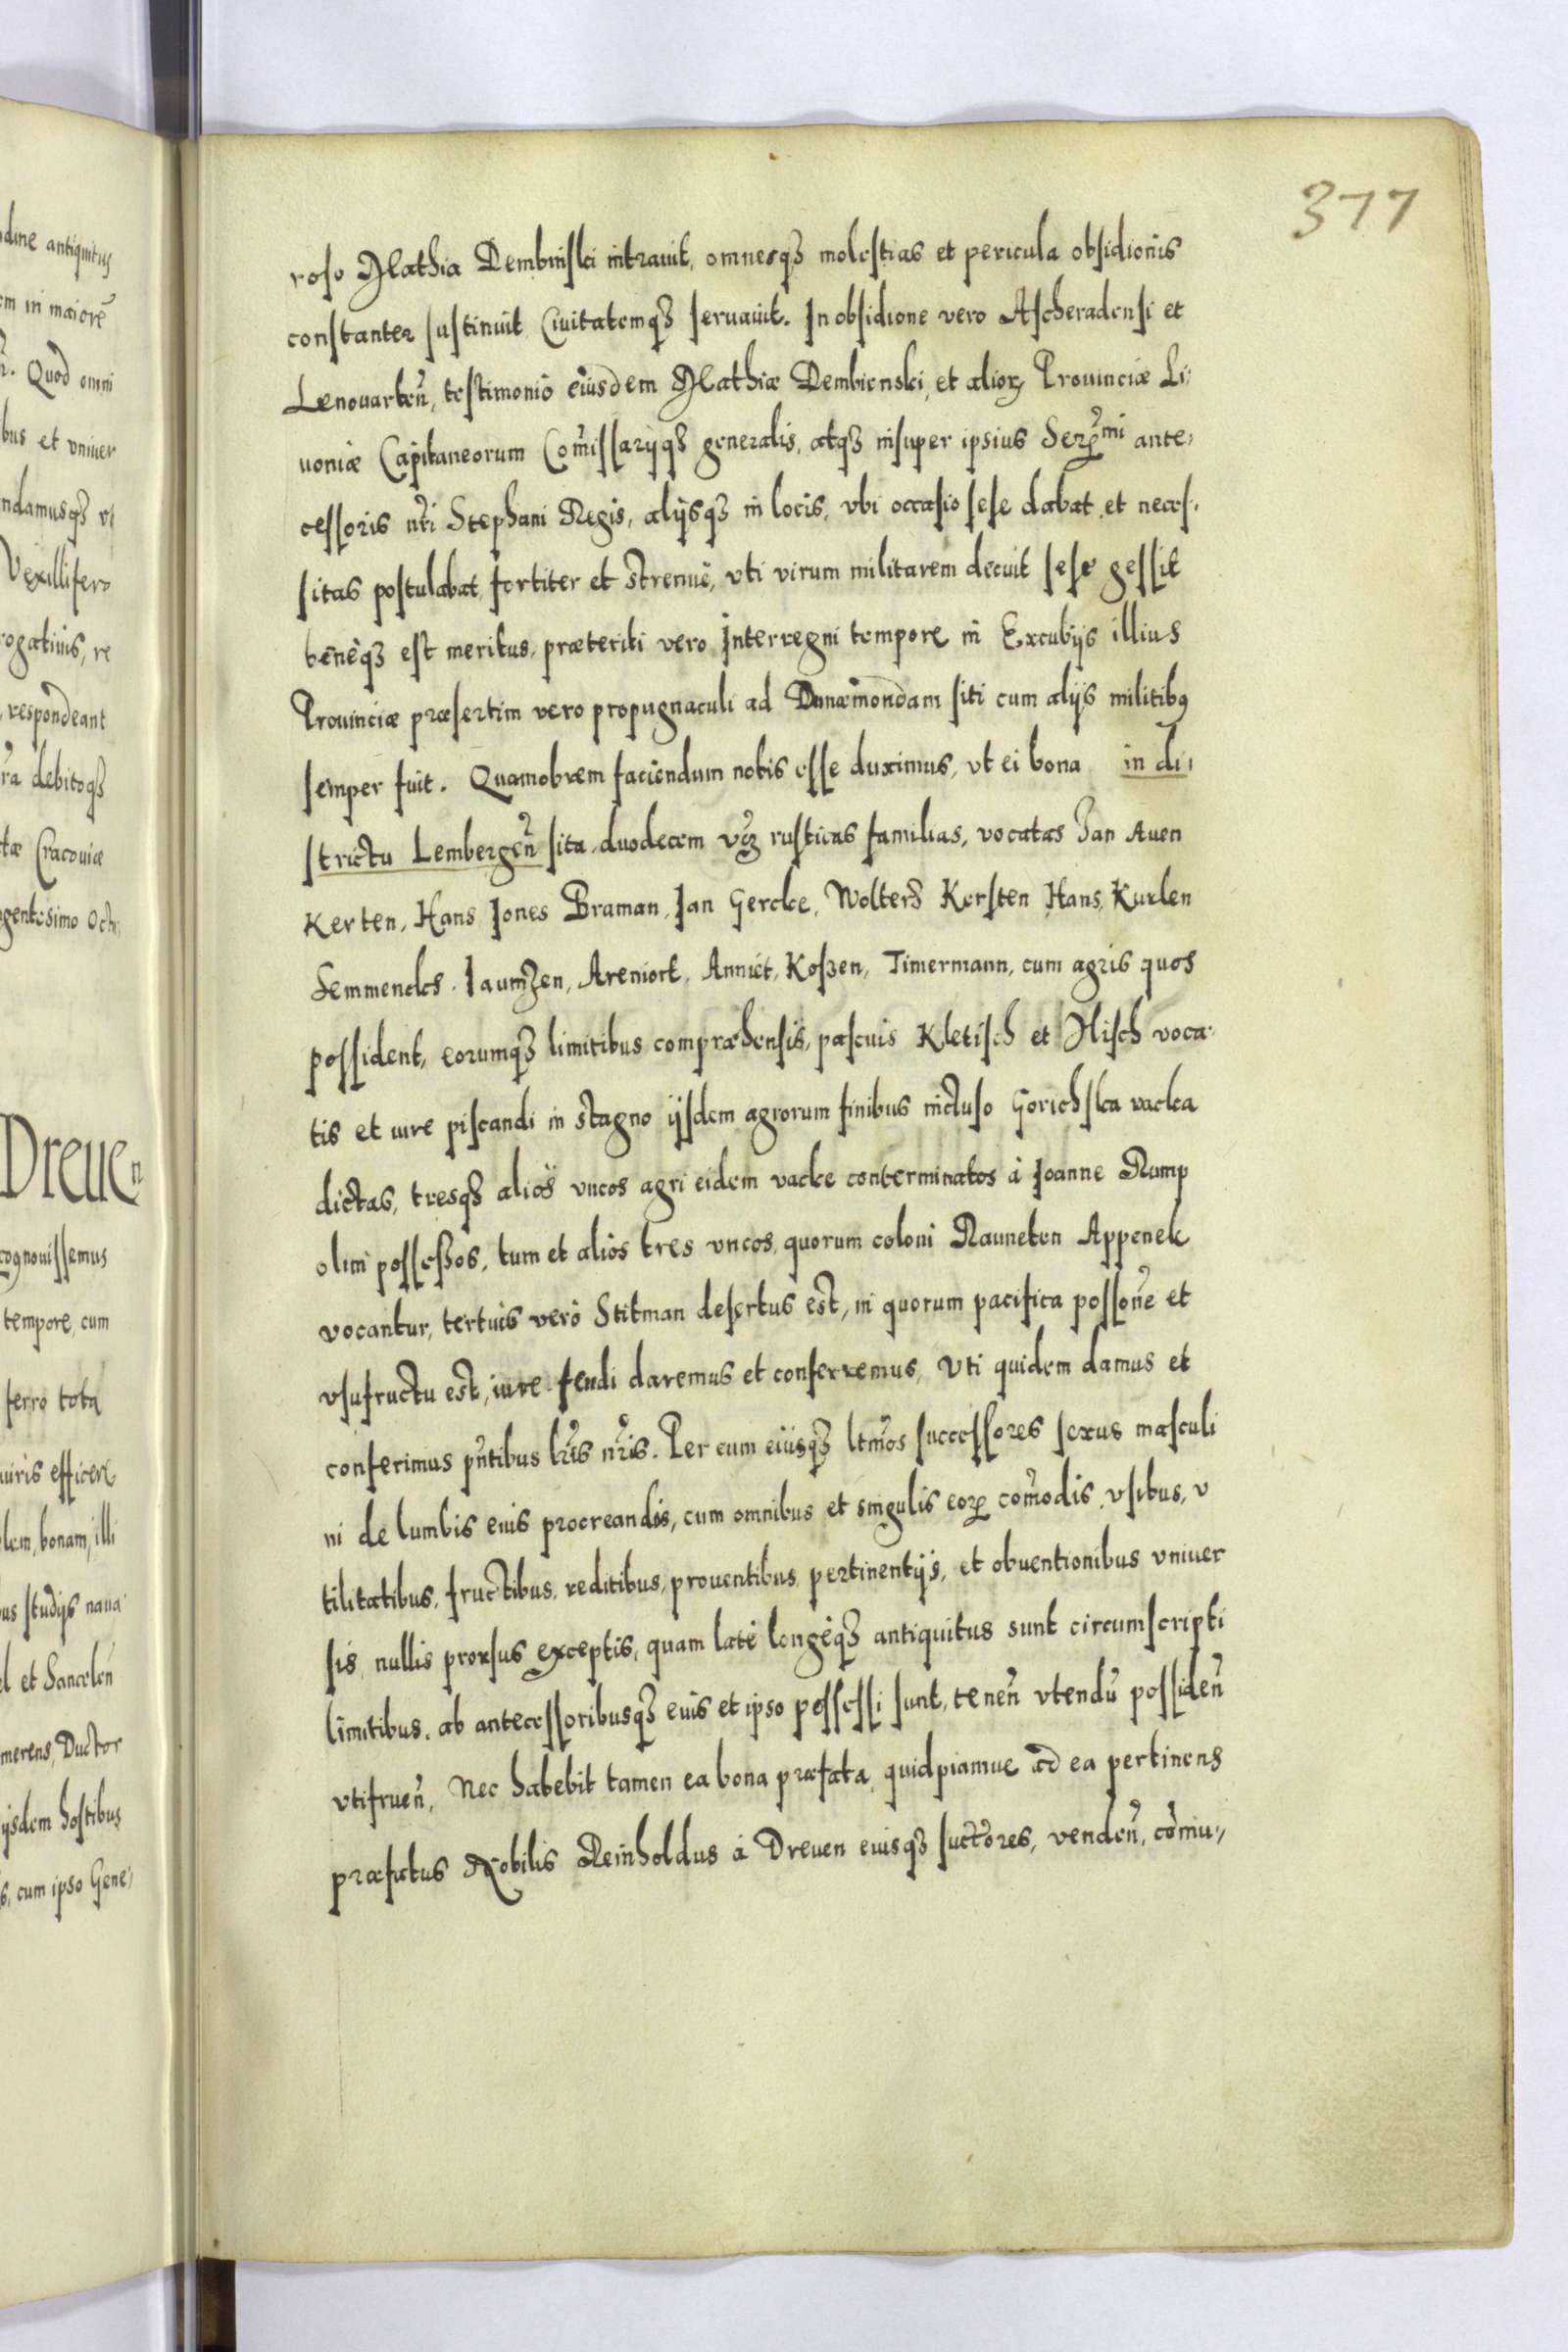 377
roso Mathia Dembinski intrauit, omnesqꝫ molestias et pericula obsidionis
constanter sustinuit Ciuitatemqꝫ seruauit. In obsidione vero Ascheradensi et
Lenouarten̄, testimonio eiusdem Mathiæ Dembienski, et alioꝝ Prouinciæ Li-
uoniæ Capitaneorum Com̄issarijqꝫ generalis, atqꝫ insuper ipsius Serꝰmi ante-
cessoris nr̄i Stephani Regis, alijsqꝫ in locis, vbi occasio sese dabat, et neces-
sitas postulabat, fortiter et strenuè, vti virum militarem decuit sese gessit
benèqꝫ est meritus, præteriti vero Interregni tempore in Excubijs illius
Prouinciæ præsertim vero propugnaculi ad Dunæmondam siti cum alijs militibꝯ
semper fuit. Quamobrem faciendum nobis esse duximus, vt ei bona in di-
strictu Lembergen̄ sita, duodecem vꝫ rusticas familias, vocatas Jan Auen
Kerten, Hans Jones Braman, Jan Gercke, Wolters Kersten Hans, Kurlen
Semmencks, Jaumzen, Areniort, Anniet, Koszen, Timermann, cum agris quos
possident, eorumqꝫ limitibus compræhensis, pascuis Kletisch et Nisch voca-
tis et iure piscandi in stagno ijsdem agrorum finibus incluso Gorichska vacka
dictas, tresqꝫ alios vncos agri eidem vacke conterminatos à Joanne Rump
olim possessos, tum et alios tres vncos, quorum coloni Rauneten Appenek
vocantur, tertius verò Stitman desertus est, in quorum pacifica posson̄e et
vsufructu est, iure feudi daremus et conferremus, Vti quidem damus et
conferimus pn̄tibus lr̄is nr̄is. Per eum eiusqꝫ ltm̄os successores sexus masculi
ni de lumbis eius procreandos, cum omnibus et singulis eoꝝ com̄odis, vsibus, v
tilitatibus, fructibus, reditibus, prouentibus, pertinentijs, et obuentionibus vniuer
sis, nullis prorsus exceptis, quam latè longèqꝫ antiquitus sunt circumscripti
limitibus, ab antecessoribusqꝫ eius et ipso possessi sunt, tenen̄ vtendū possiden̄
vtifruen̄, Nec habebit tamen ea bona præfata, quidpiamue ad ea pertinens
præfatus Nobilis Reinholdus à Dreuen eiusqꝫ suctores, venden̄, com̄u-